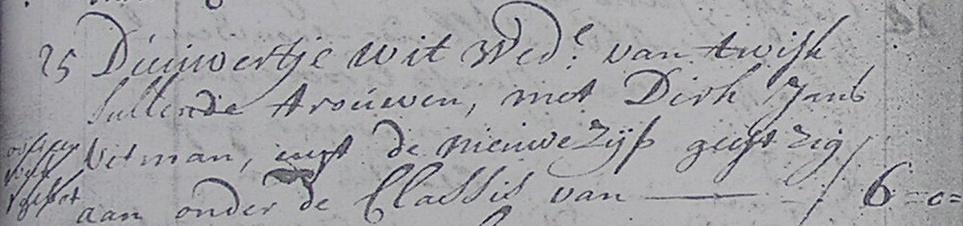 25 Duiwertje Wit Wed.e van twisk
sullende trouwen, met Dirk Jansz
Vetman, uyt de nieuwe Zijp geeft zig
aan onder de Classis van — 6 = 0 =